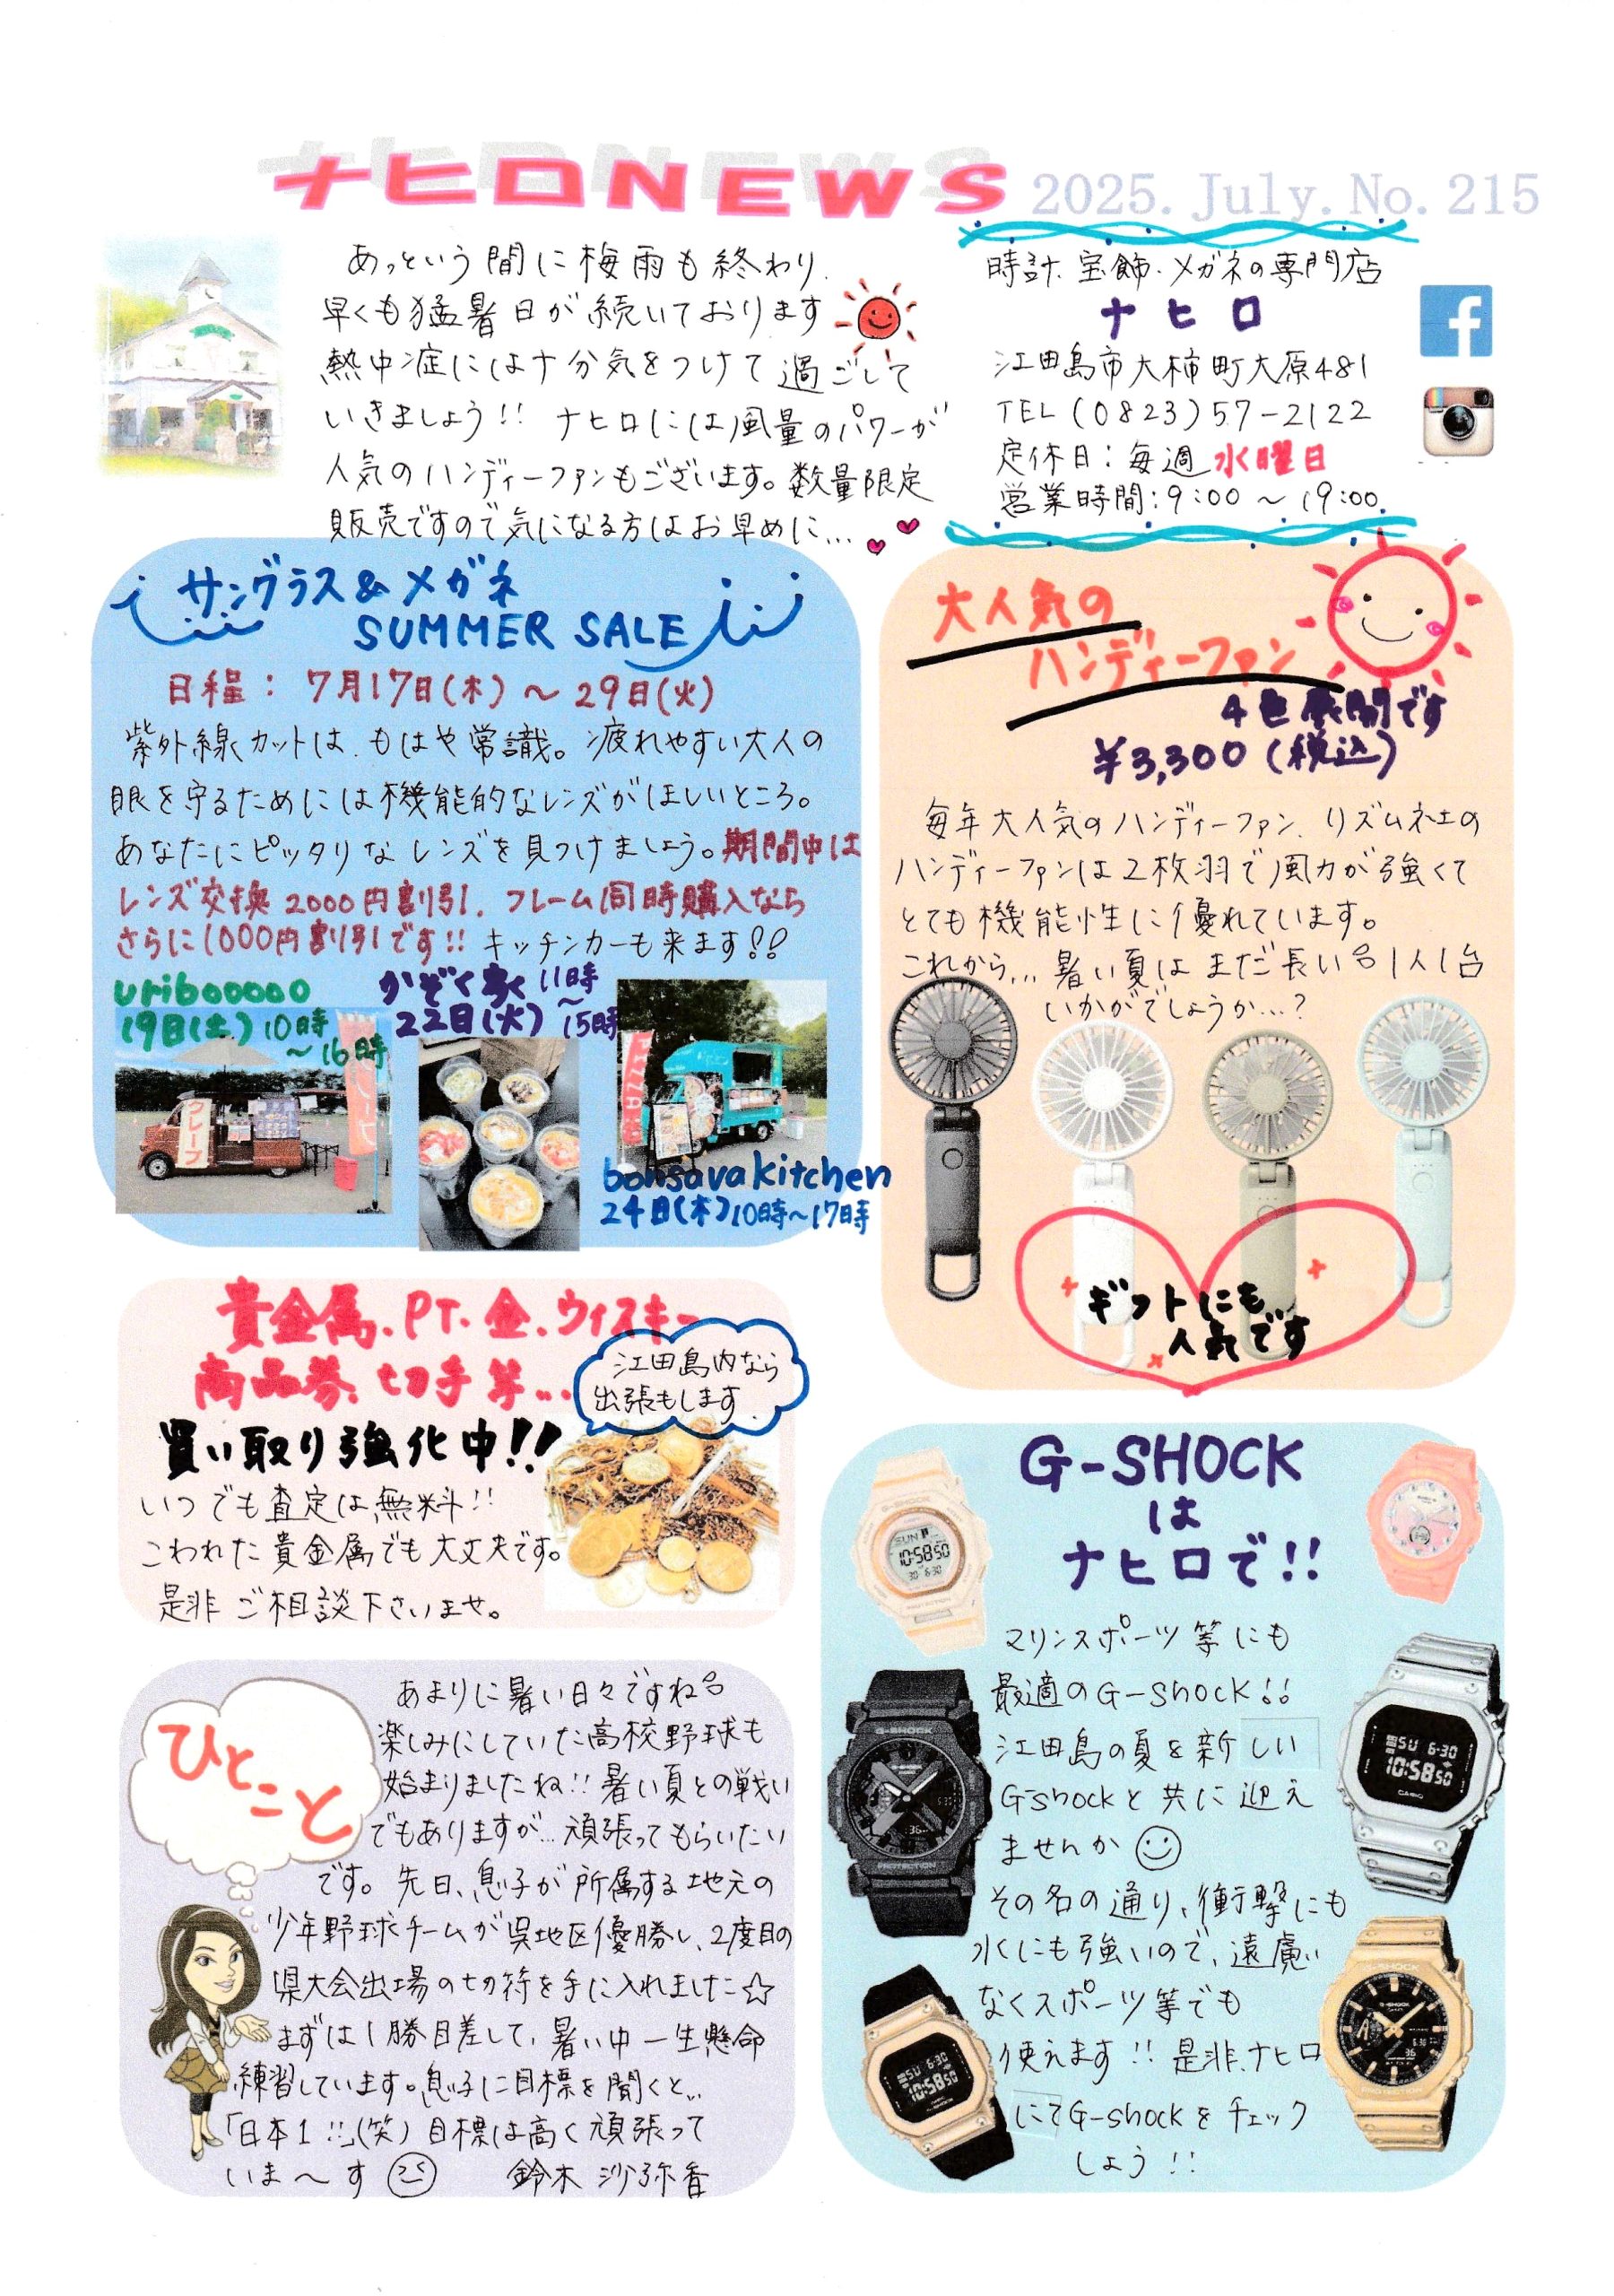 ナヒロNEWS
2025. July. No. 215
あっという間に梅雨も終わり、
早くも猛暑日が続いております
熱中症には十分気をつけて過ごして
いきましょう!! ナヒロには風量のパワーが
人気のハンディーファンもございます。数量限定
販売ですので気になる方はお早めに...
時計、宝飾・メガネの専門店
ナヒロ
江田島市大柿町大原481
TEL(0823)57-2122
定休日:毎週水曜日
営業時間:9:00〜19:00
サングラス&メガネ
SUMMER SALE
日程: 7月17日(木)〜29日(火)
紫外線カットは、もはや常識。疲れやすい大人の
眼を守るためには機能的なレンズがほしいところ。
あなたにピッタリなレンズを見つけましょう。期間中は
レンズ交換2000円割引、フレーム同時購入なら
さらに1000円割引です!! キッチンカーも来ます!!
uribooooo
19日(土)10時
〜16時
クレープ
かぞく家く 11時
22日(火)〜15時
PIZZA
bonsava kitchen
24日(木)10時〜17時
大人気の
ハンディーファン
4色展開です
¥3,300(税込)
毎年大人気のハンディーファン、リズム社の
ハンディーファンは2枚羽で風力が強くて
とても機能性に優れています。
これから...暑い夏はまだ長い!!1人1台
いかがでしょうか...?
ギフトにも
人気です
貴金属、PT、金、ウィスキー
商品券、切手等...
買い取り強化中!!
江田島内なら
出張もします
いつでも査定は無料!!
こわれた貴金属でも大丈夫です。
是非ご相談下さいませ。
G-SHOCK
は
ナヒロで!!
マリンスポーツ等にも
最適のG-shock!!
江田島の夏を新しい
G-shockと共に迎え
ませんか
その名の通り、衝撃にも
水にも強いので、遠慮い
なくスポーツ等でも
使えます!! 是非、ナヒロ
にてG-shockをチェック
しよう!!
ひとこと
あまりに暑い日々ですね!!
楽しみにしていた高校野球も
始まりましたね!! 暑い夏との戦い
でもありますが...頑張ってもらいたい
です。先日、息子が所属する地元の
少年野球チームが呉地区優勝し、2度目の
県大会出場の切符を手に入れました☆
まずは1勝目差して、暑い中一生懸命
練習しています。息子に目標を聞くと...
「日本1!!」(笑)目標は高く頑張って
いま〜す 鈴木 沙弥香